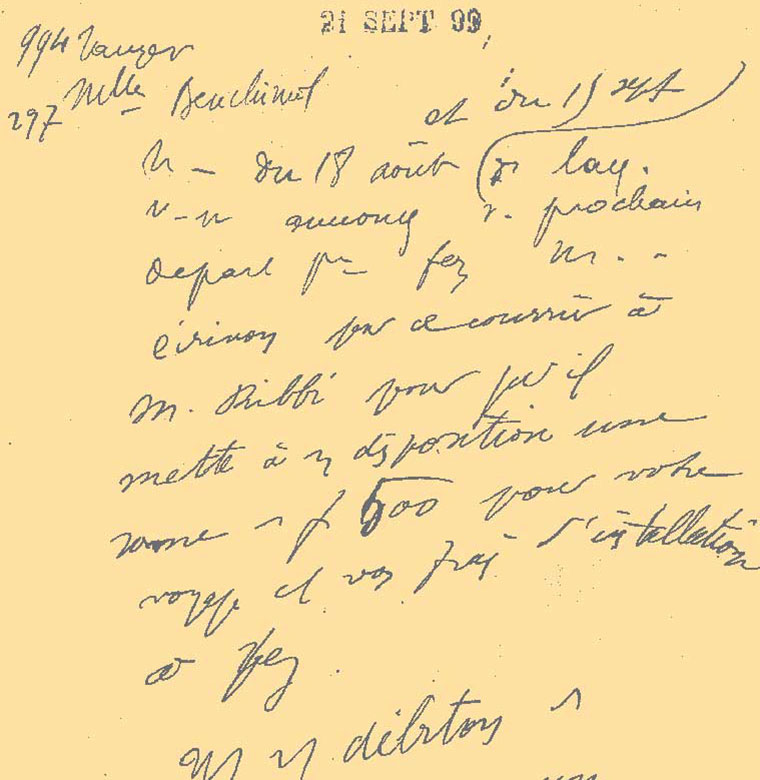 21 SEPT 99
994 Tanger
Melle Benchimol
297
et du 15 sept
du 18 août lay.
annonç v. prochain
départ pr fez
écrivons par ce courrier à
M. Ribbi pour qu'il
mette à v disposition une
somme f 500 pour votre
voyage et vos frais d'installation
à Fez.
débitons